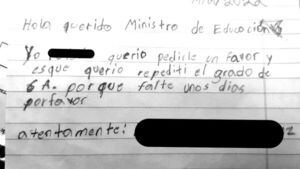 Hola querido Ministro de Educación
Yo querio pedirle un favor y
esque querio repetiti el grado de
6 A. porque falte unos dias
porfavor
atentamente: